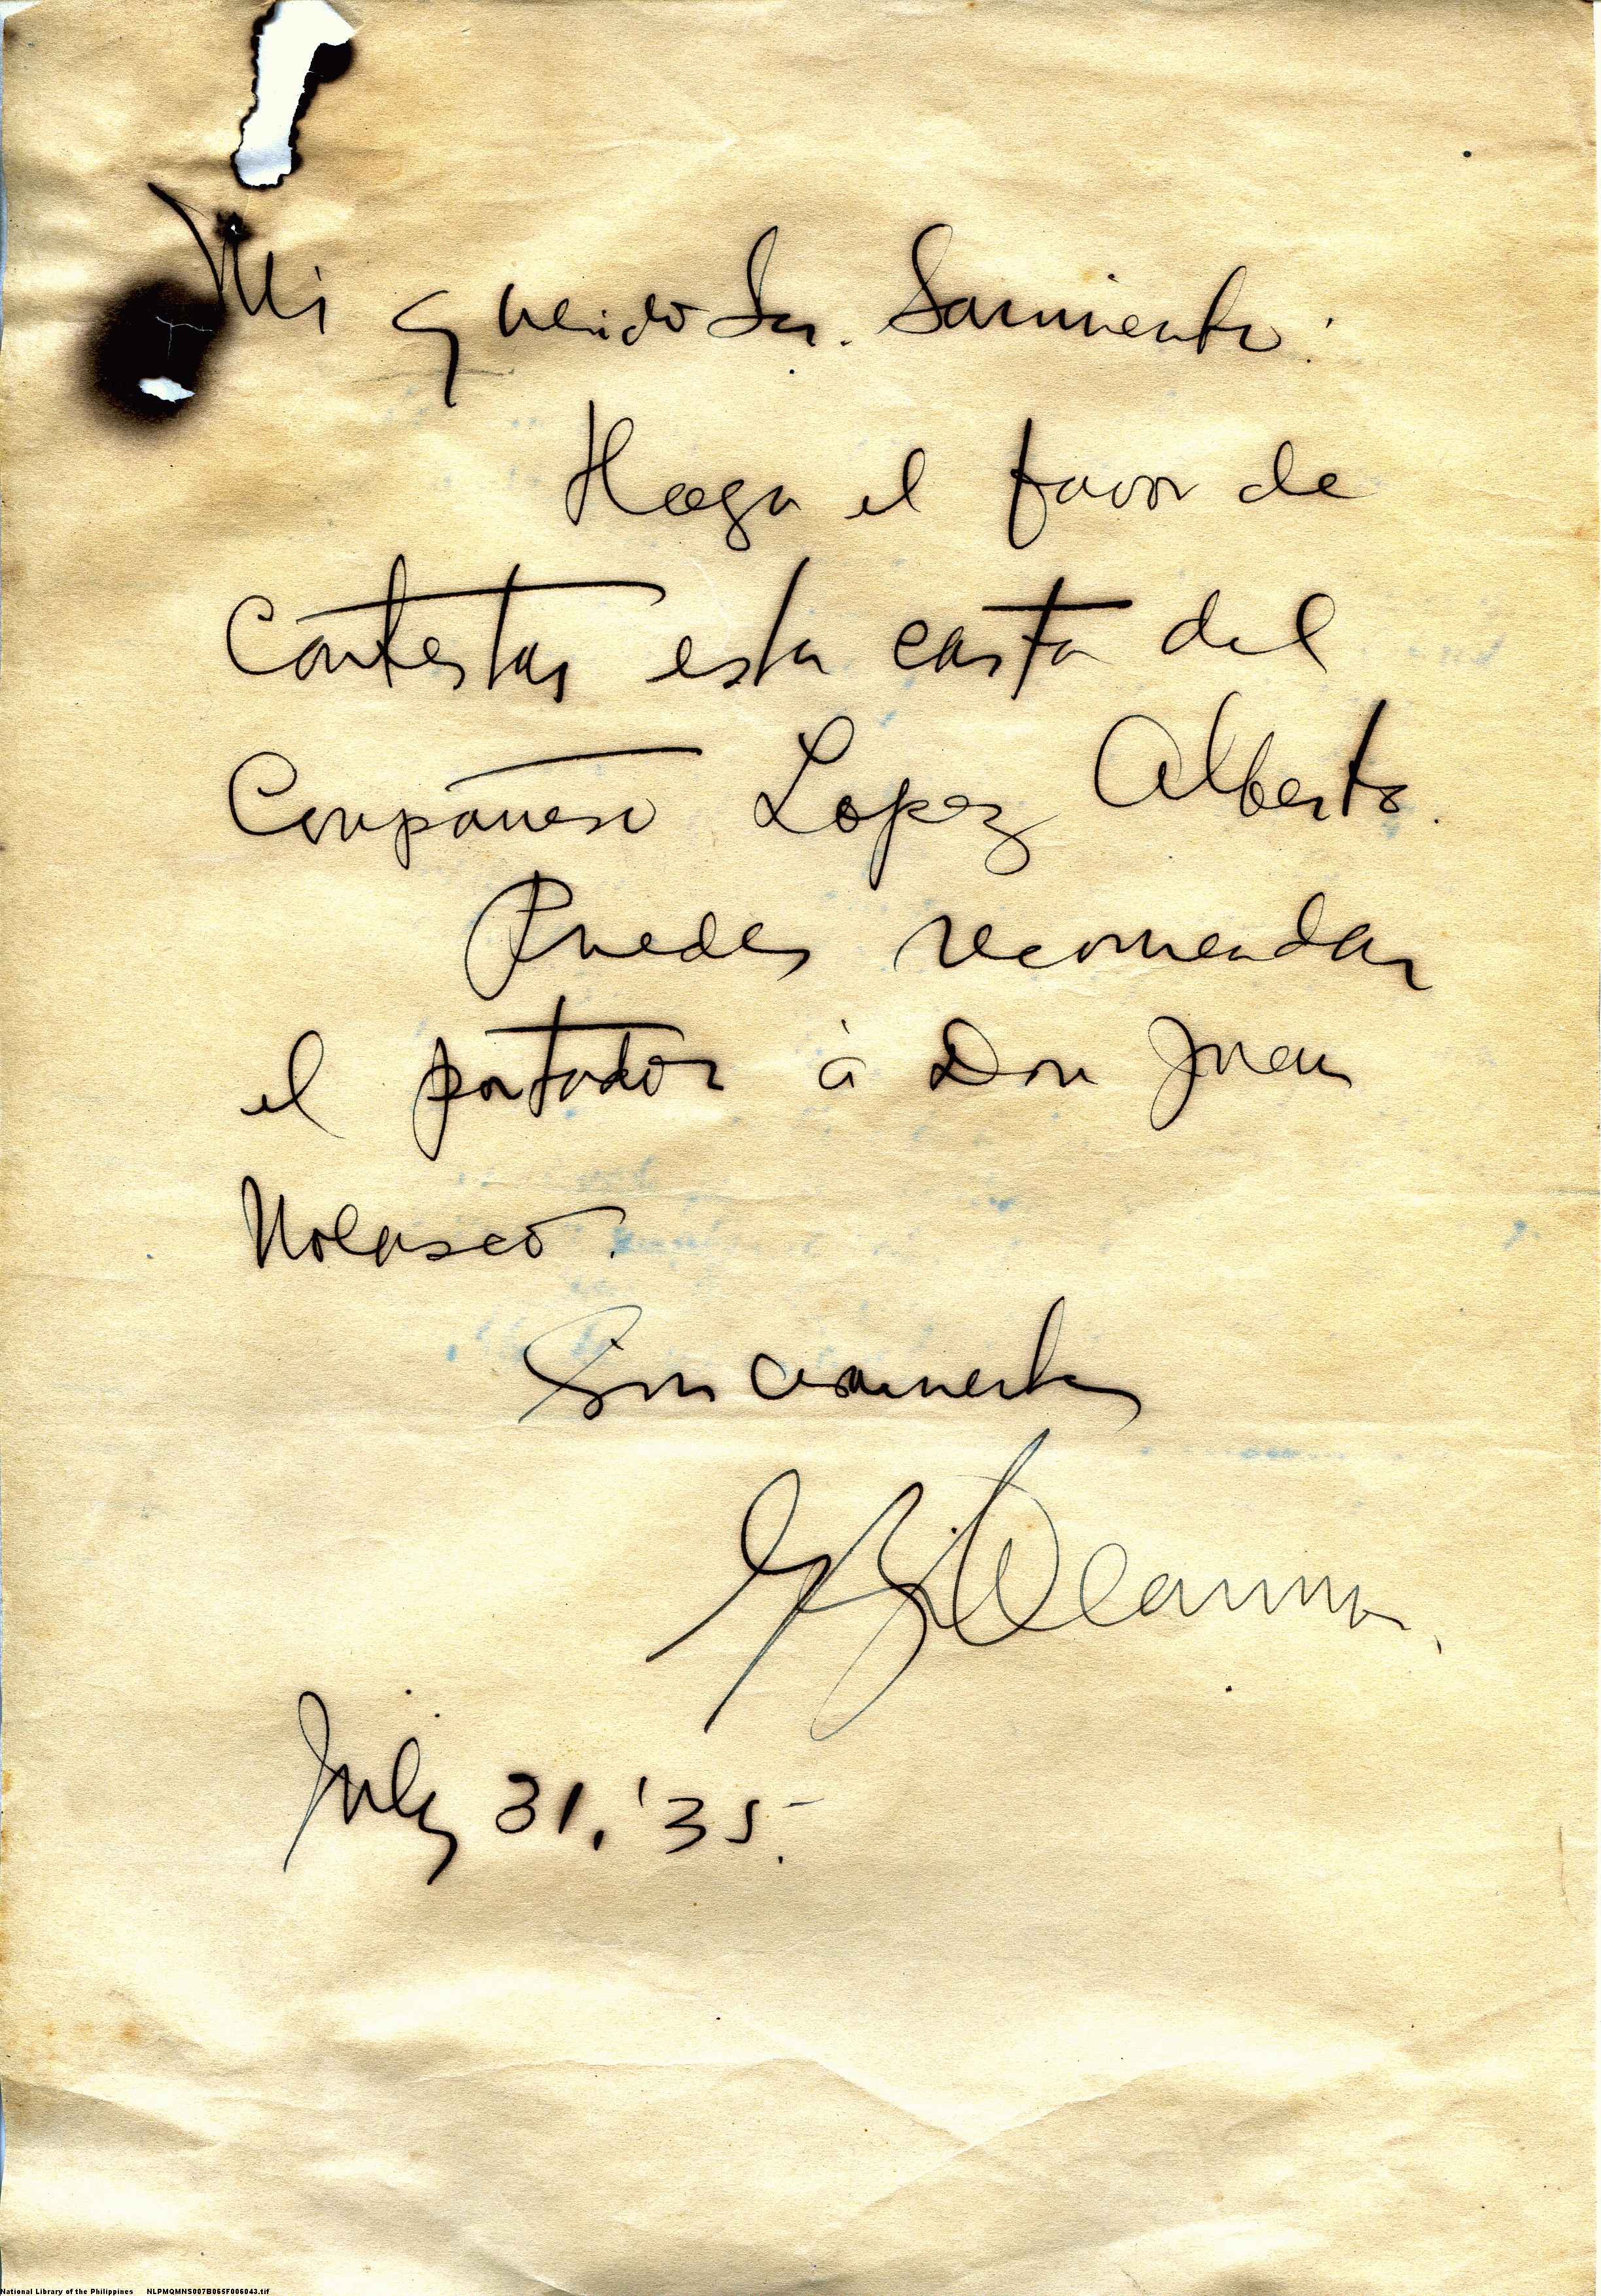 Mi querido Sr. Sarmiento:
Haga el favor de
contestar esta carta del
Compañero Lopez Alberto.
Puedes recomendar
el portador à Don Juan
Nolasco.
Sinceramente
July 31, '35.
National Library of the Philippines NLPMQMNS007B065F006043.tif